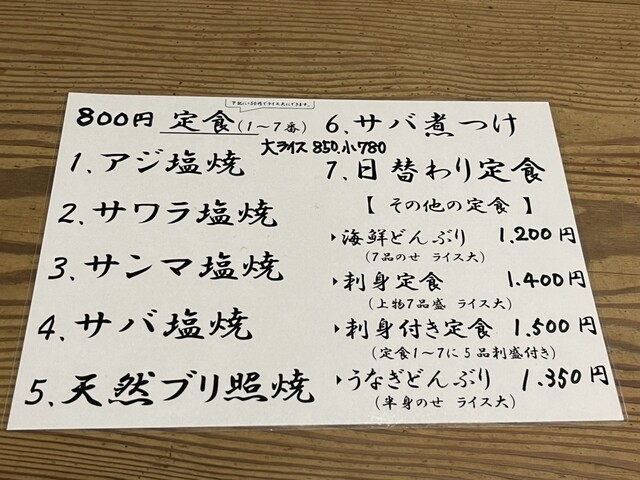 下記に+50円でライス大にできます。
800円 定食(1~7番)
大ライス 850. 小780
1. アジ塩焼
2. サワラ塩焼
3. サンマ塩焼
4. サバ塩焼
5. 天然ブリ照焼
6. サバ煮つけ
7. 日替わり定食
【 その他の定食 】
▸海鮮どんぶり 1.200円
(7品のせ ライス大)
▸刺身定食 1.400円
(上物7品盛 ライス大)
▸刺身付き定食 1.500円
(定食1~7に5品刺盛付き)
▸うなぎどんぶり 1.350円
(半身のせ ライス大)